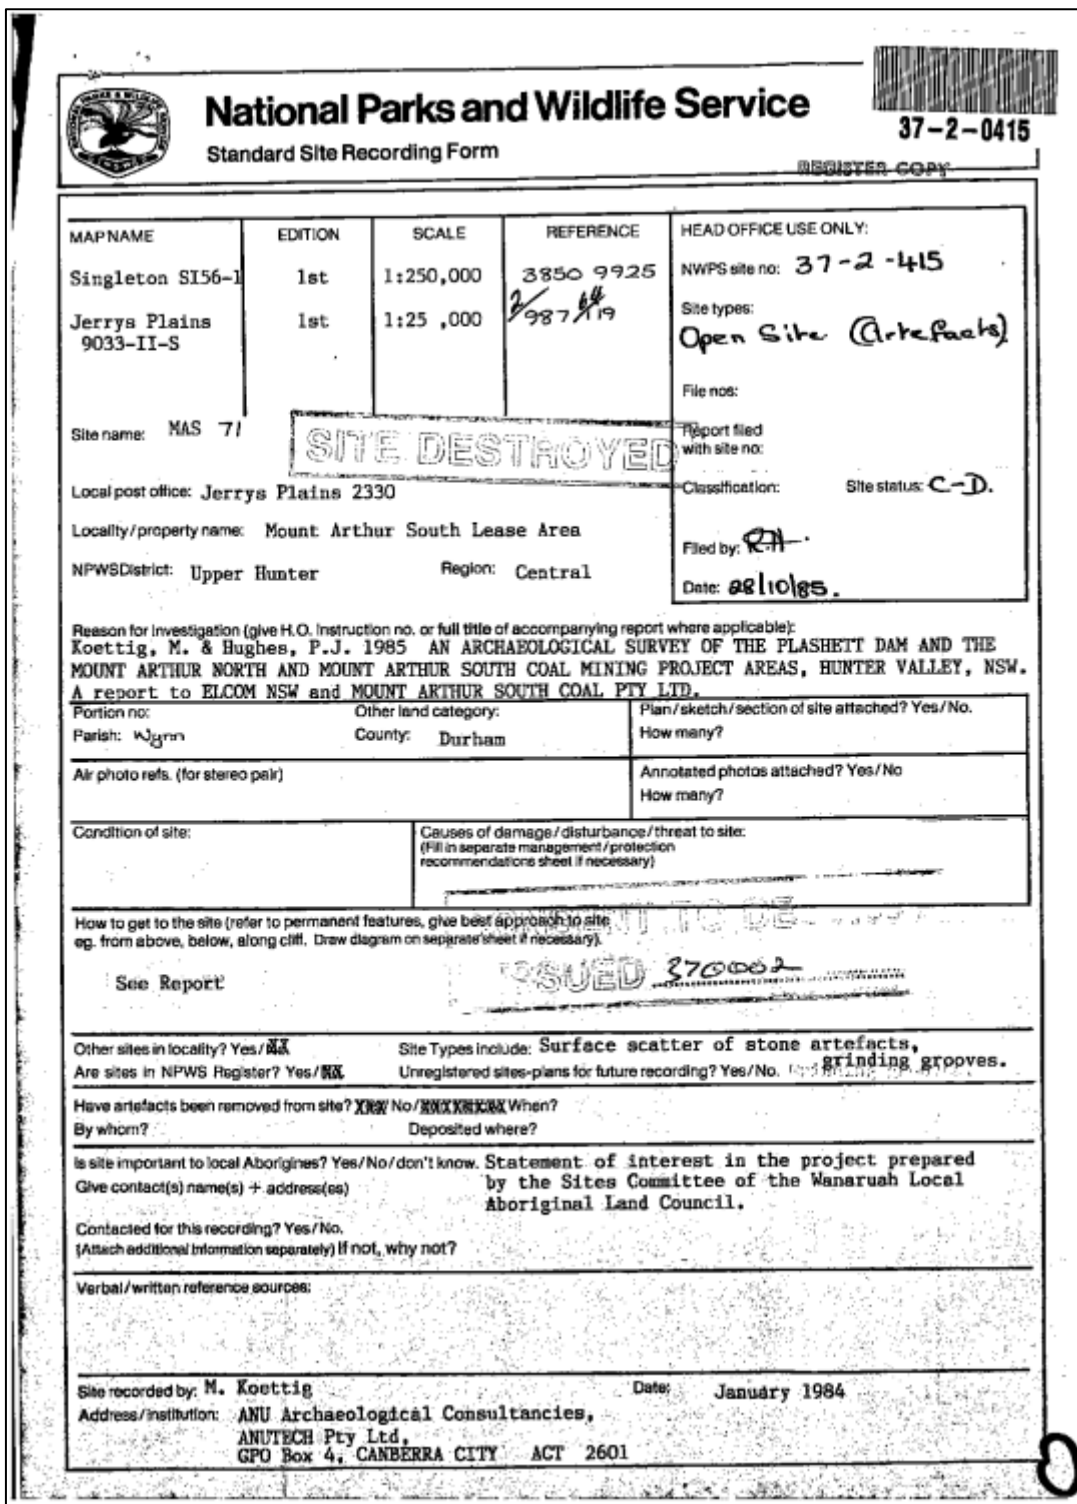 National Parks and Wildlife Service
Standard Site Recording Form
37-2-0415
REGISTER COPY
MAP NAME EDITION SCALE REFERENCE
Singleton SI56-1 1st 1:250,000 3850 9925
Jerrys Plains 1st 1:25 ,000
9033-II-S
HEAD OFFICE USE ONLY:
NWPS site no: 37-2-415
Site types:
Open Site (Artefacts)
File nos:
Report filed
with site no:
Classification: Site status: C-D.
Filed by: R.H.
Date: 28/10/85.
Site name: MAS 71
SITE DESTROYED
Local post office: Jerrys Plains 2330
Locality/property name: Mount Arthur South Lease Area
NPWS District: Upper Hunter Region: Central
Reason for investigation (give H.O. Instruction no. or full title of accompanying report where applicable):
Koettig, M. & Hughes, P.J. 1985 AN ARCHAEOLOGICAL SURVEY OF THE PLASHETT DAM AND THE
MOUNT ARTHUR NORTH AND MOUNT ARTHUR SOUTH COAL MINING PROJECT AREAS, HUNTER VALLEY, NSW.
A report to ELCOM NSW and MOUNT ARTHUR SOUTH COAL PTY LTD.
Portion no: Other land category: Plan/sketch/section of site attached? Yes/No.
Parish: Wynn County: Durham How many?
Air photo refs. (for stereo pair) Annotated photos attached? Yes/No
How many?
Condition of site: Causes of damage/disturbance/threat to site:
(Fill in separate management/protection
recommendations sheet if necessary)
How to get to the site (refer to permanent features, give best approach to site
eg. from above, below, along cliff. Draw diagram on separate sheet if necessary).
See Report
ISSUED 370002
Other sites in locality? Yes/ Site Types include: Surface scatter of stone artefacts,
grinding grooves.
Are sites in NPWS Register? Yes/ Unregistered sites-plans for future recording? Yes/No.
Have artefacts been removed from site? No/ When?
By whom? Deposited where?
Is site important to local Aborigines? Yes/No/don't know. Statement of interest in the project prepared
Give contact(s) name(s) + address(es) by the Sites Committee of the Wanaruah Local
Aboriginal Land Council.
Contacted for this recording? Yes/No.
(Attach additional information separately) If not, why not?
Verbal/written reference sources:
Site recorded by: M. Koettig Date: January 1984
Address/institution: ANU Archaeological Consultancies,
ANUTECH Pty Ltd,
GPO Box 4, CANBERRA CITY ACT 2601